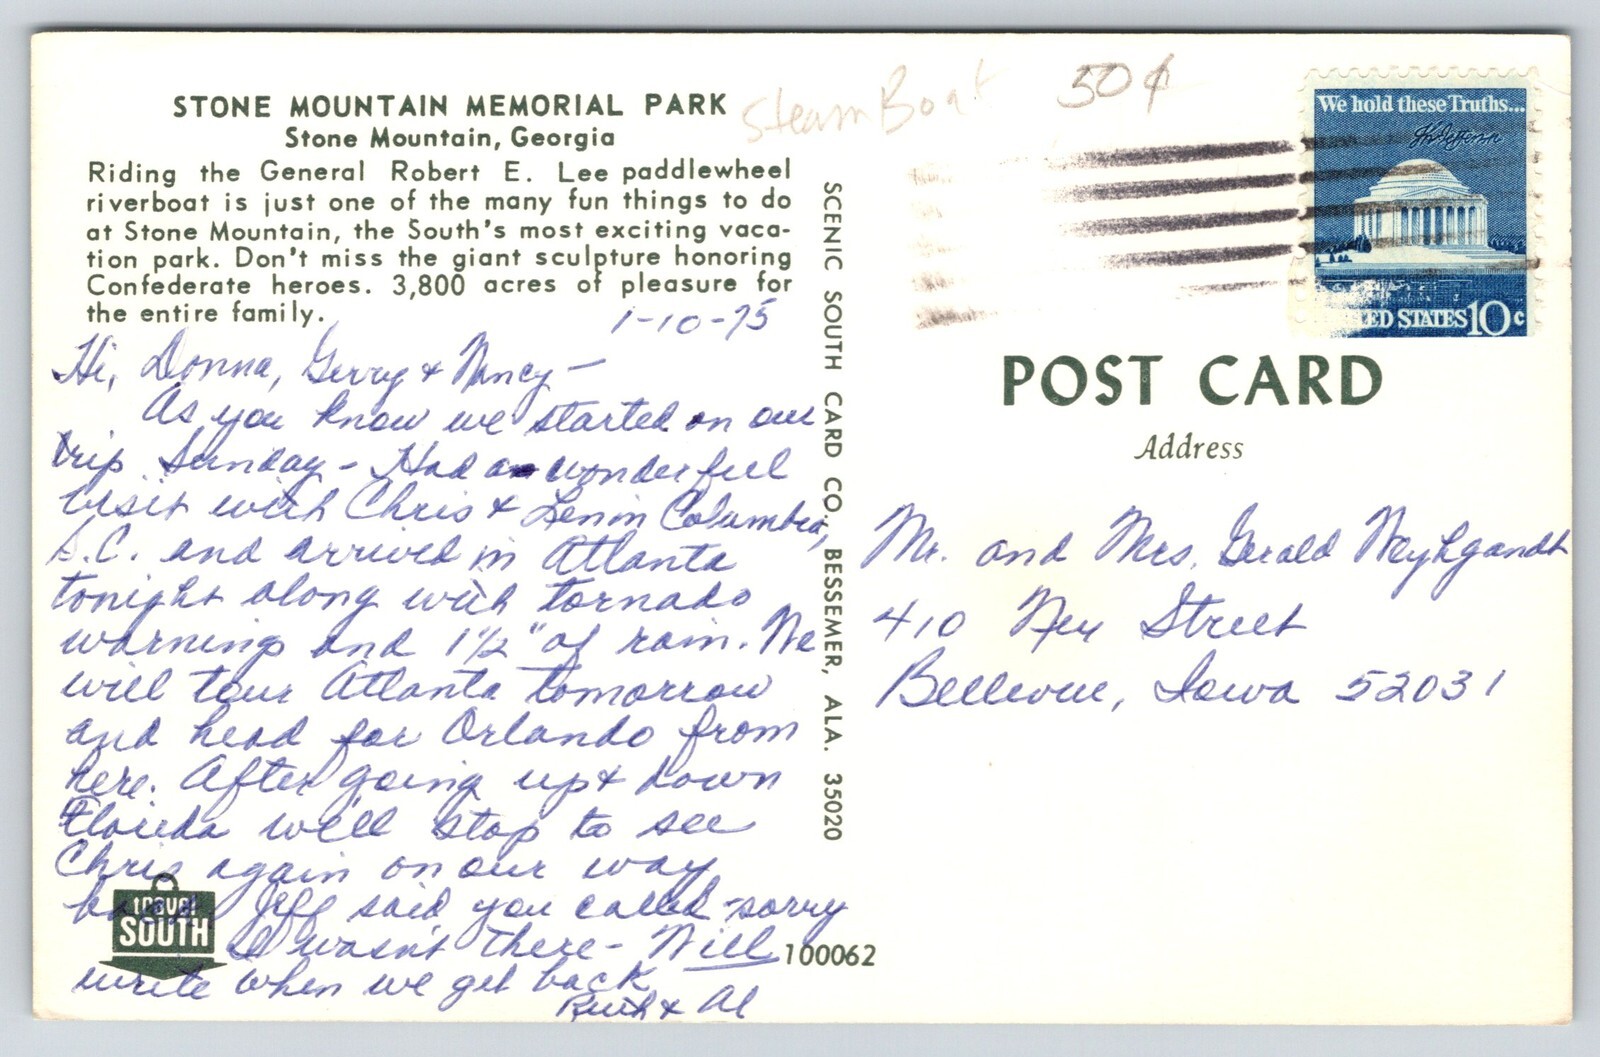 STONE MOUNTAIN MEMORIAL PARK
Stone Mountain, Georgia
Riding the General Robert E. Lee paddlewheel
riverboat is just one of the many fun things to do
at Stone Mountain, the South's most exciting vaca-
tion park. Don't miss the giant sculpture honoring
Confederate heroes. 3,800 acres of pleasure for
the entire family.
1-10-75
Hi, Donna, Gerry & Nancy –
As you know we started on our
trip Sunday – Had a wonderful
visit with Chris & in Columbia,
S.C. and arrived in Atlanta
tonight along with tornado
warning and 1 1/2" of rain. We
will tour Atlanta tomorrow
and head for Orlando from
here. After going up & down
Florida we'll stop to see
Chris again on our way
Jeff said you called – sorry
I wasn't there – Will
write when we get back
Ruth & Al
travel
SOUTH
100062
SCENIC SOUTH CARD CO., BESSEMER, ALA. 35020
SteamBoat 50¢
We hold these Truths...
Th Jefferson
ED STATES 10c
POST CARD
Address
Mr. and Mrs. Gerald Weyhgandt
410 Street
Bellevue, Iowa 52031